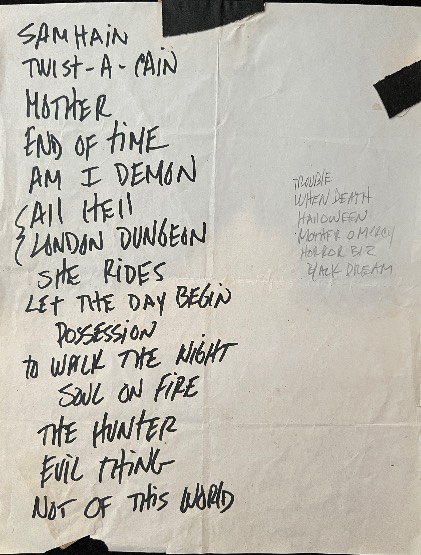 SAMHAIN
TWIST-A-CAIN
MOTHER
END OF TIME
AM I DEMON
All HEll
LONDON DUNGEON
SHE RIDES
LET THE DAY BEGIN
POSSESSION
TO WALK THE NIGHT
SOUL ON FIRE
THE HUNTER
EVIL THING
NOT OF THIS WORLD
TROUBLE
WHEN DEATH
HALLOWEEN
MOTHER O MERCY
HORROR BIZ
DREAM